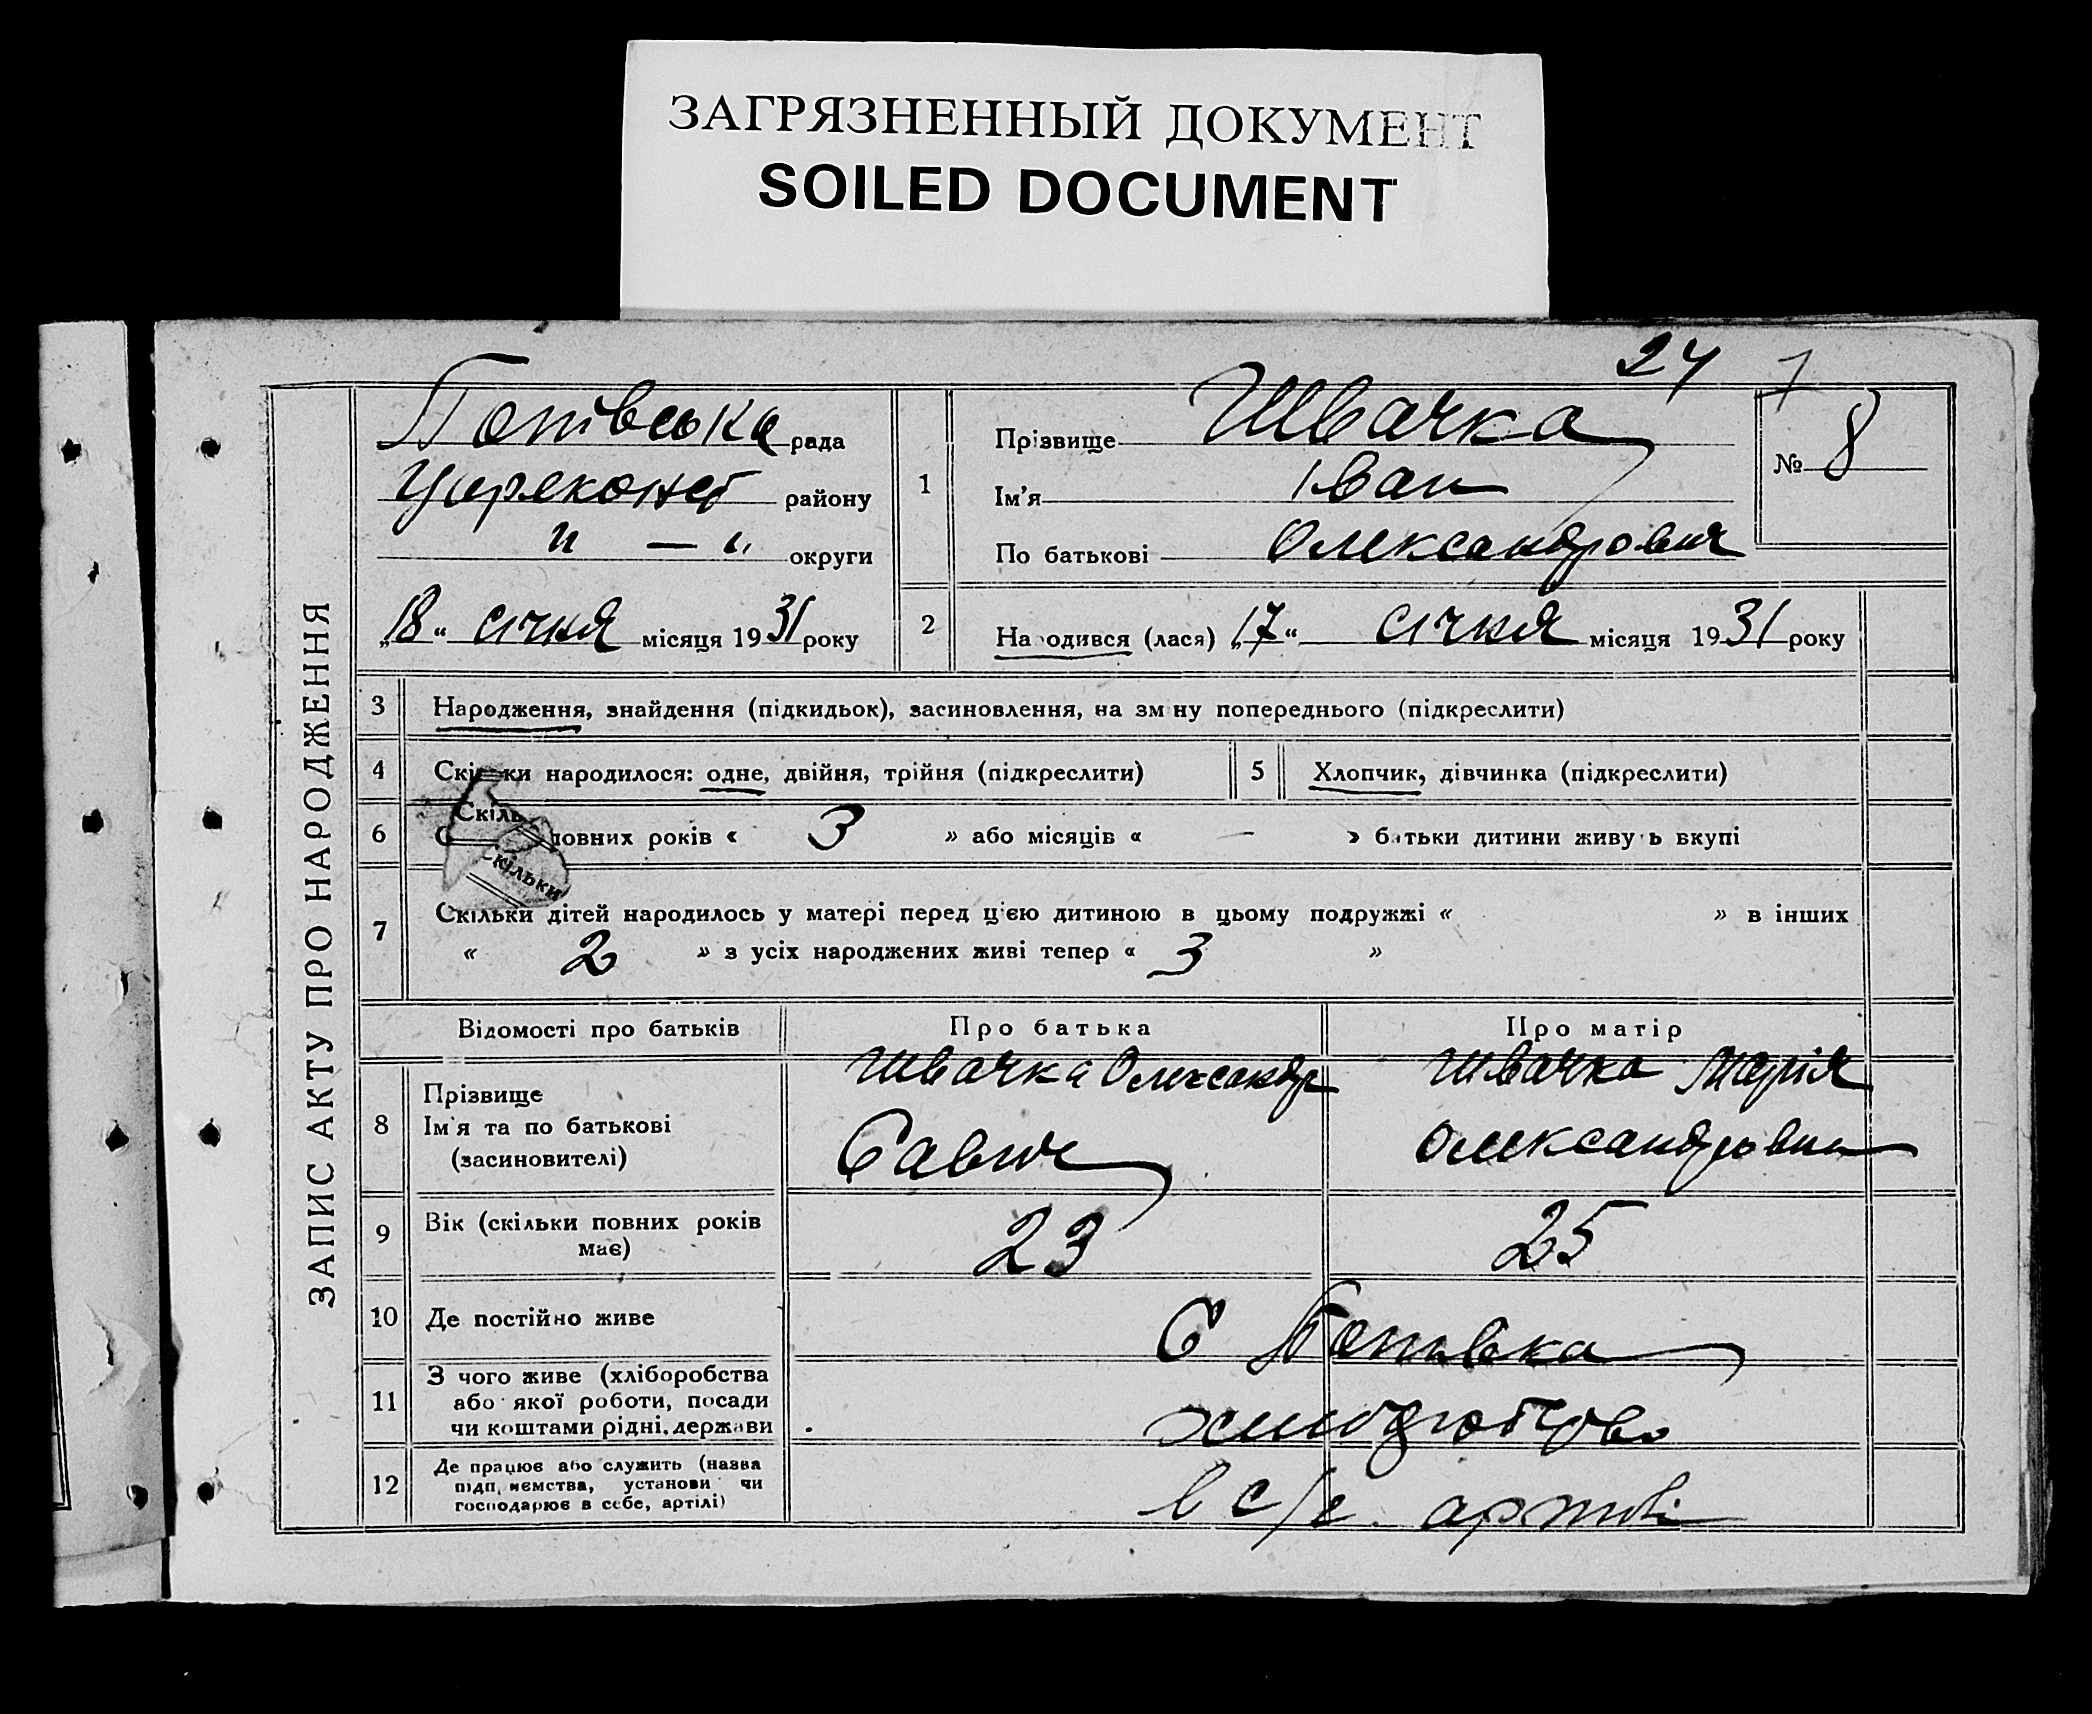 ЗАГРЯЗНЕННЫЙ ДОКУМЕНТ
SOILED DOCUMENT
24 7
ЗАПИС АКТУ ПРО НАРОДЖЕННЯ
Попівська рада
району
" — " округи
„18“ січня місяця 1931 року
1
Прізвище Швачка
Ім'я Іван
По батькові Олександрович
№ 8
2
Народився (лася) „17“ січня місяця 1931 року
3 Народження, знайдення (підкидьок), засиновлення, на зм ну попереднього (підкреслити)
4 Скільки народилося: одне, двійня, трійня (підкреслити) 5 Хлопчик, дівчинка (підкреслити)
Скіль
6 С повних років « 3 » або місяців « — » батьки дитини живуть вкупі
скільки
7 Скільки дітей народилось у матері перед цією дитиною в цьому подружжі « » в інших
« 2 » з усіх народжених живі тепер « 3 »
Відомості про батьків Про батька Про матір
8 Прізвище Швачка Олександр Швачка Марія
Ім'я та по батькові Савич Олександровна
(засиновителі)
9 Вік (скільки повних років 23 25
має)
10 Де постійно живе С Попівка
11 З чого живе (хліборобства
або якої роботи, посади
чи коштами рідні, держави
12 Де працює або служить (назва
підприємства, установи чи в с/г. артілі
господарює в себе, артілі)